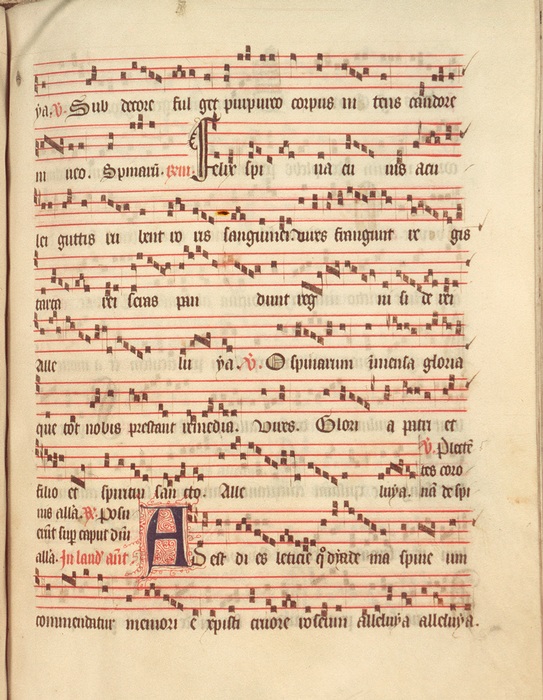 ya. V. Sub decore ful get purpureo corpus in tens candore
ni ueo. Spinarum. Felix spi na cu uis acu
lei guttis ru bent ro ris sanguinei. vires frangunt re gis
tarta rei seras pan dunt reg ni si de rei
Alle lu ya. V. O spinarum imensa gloria
que tot nobis prestant remedia. Vires. Glori a patri et
V. Plecte
filio et spiritui san cto. Alle luiya. tes coro
nam de spi
nis alla. R. Posu
erunt sup caput dni
alla. In laud' ant. Adest di es leticie q dyade ma spine um
commendatur memori e xpisti cruore roseum alleluya alleluya.